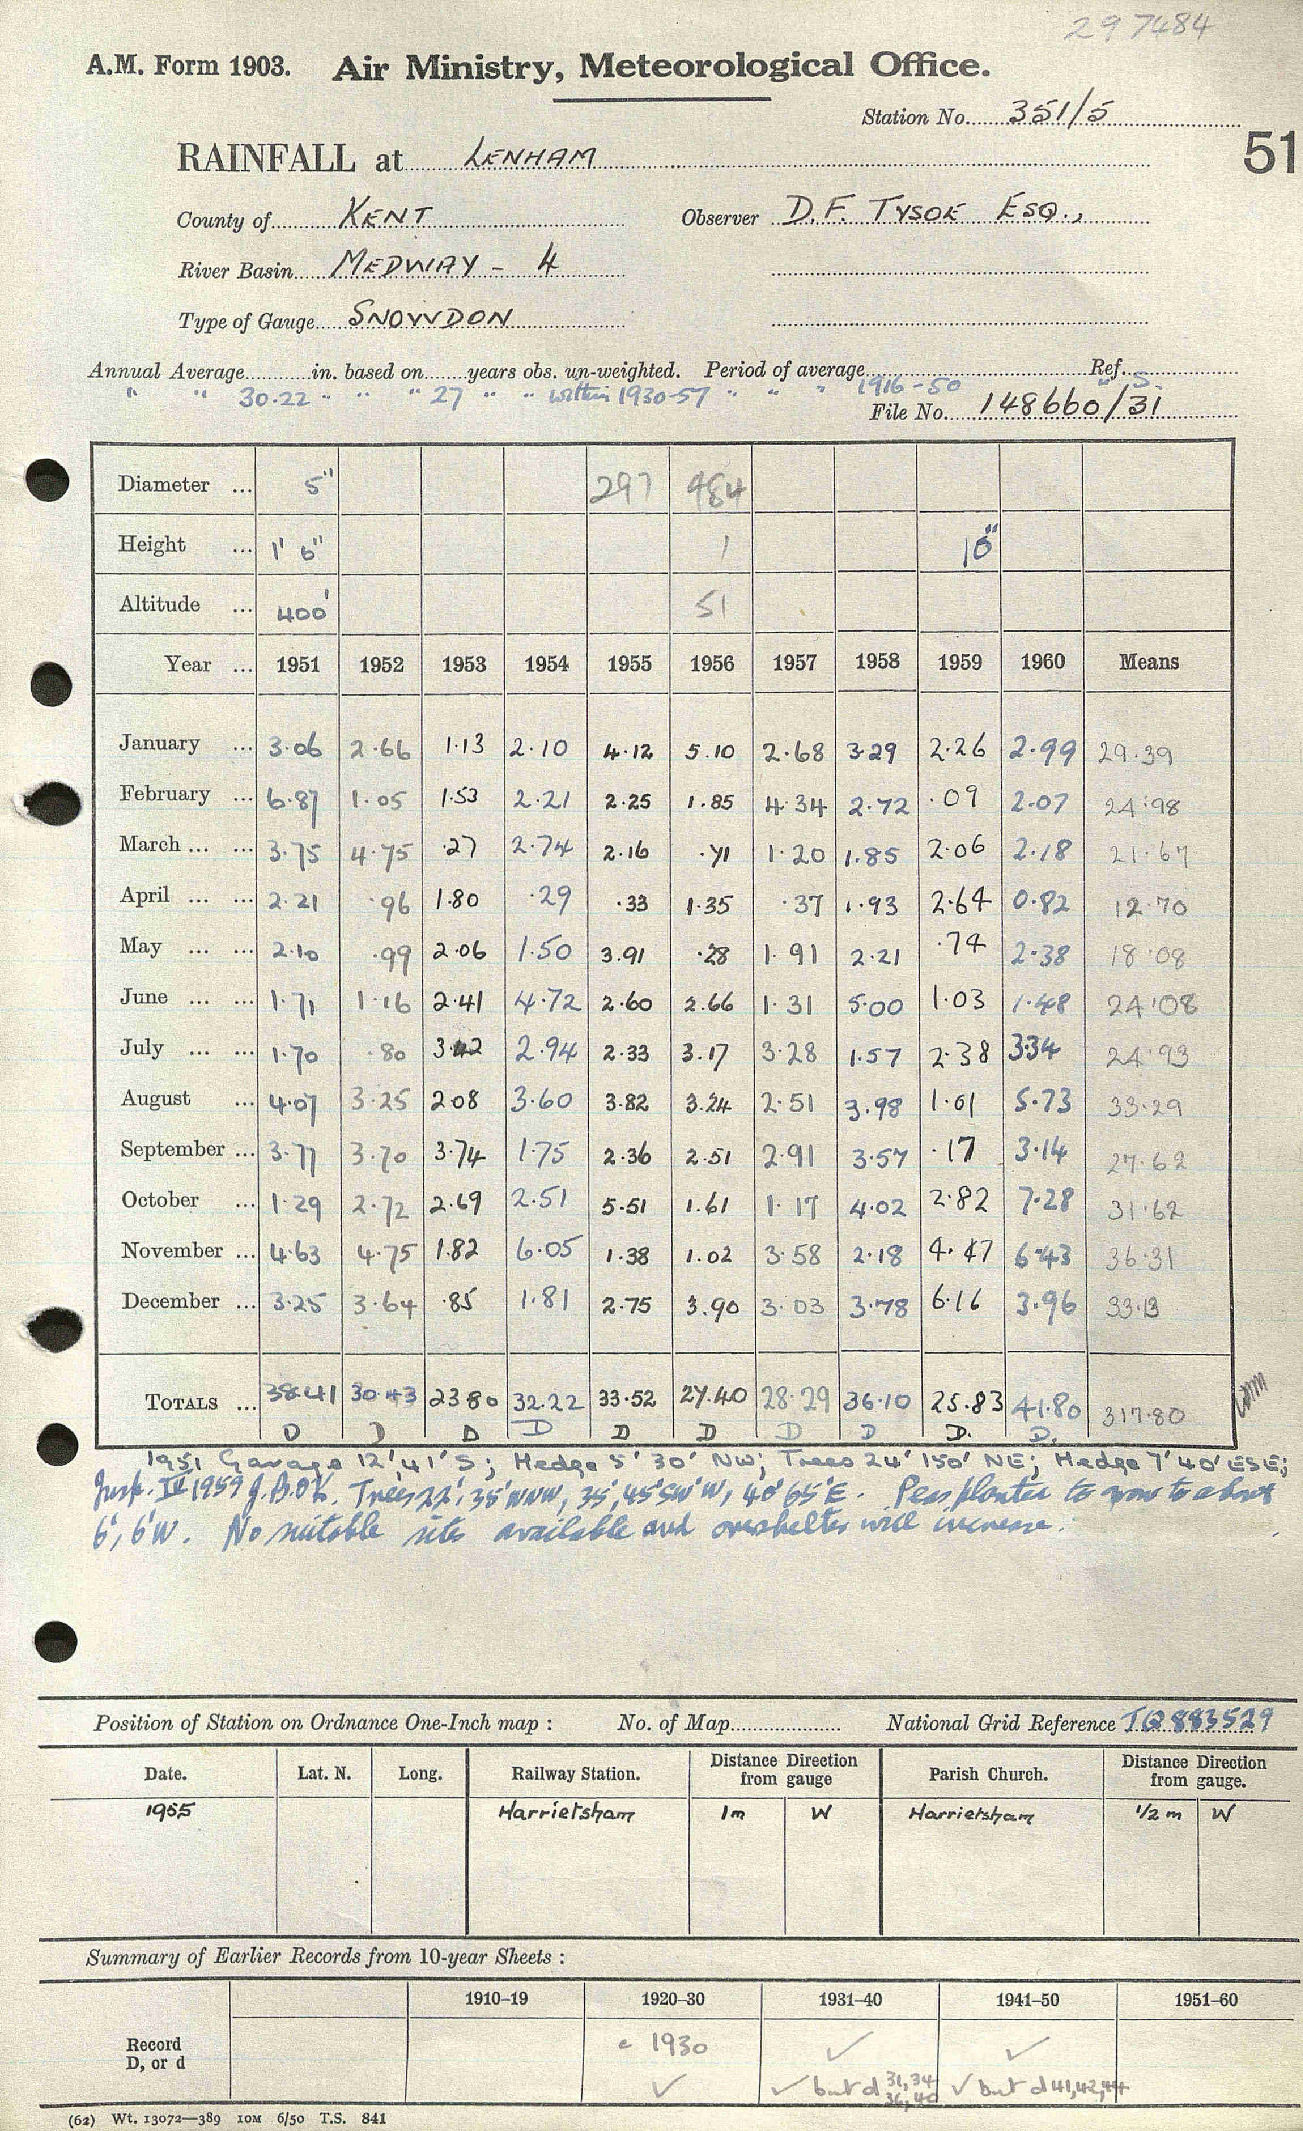 297484
A.M. Form 1903. Air Ministry, Meteorological Office.
Station No. 351/5
51
RAINFALL at LENHAM
County of KENT Observer D.F. TYSOE ESQ.,
River Basin MEDWAY - 4
Type of Gauge SNOWDON
Annual Average in. based on years obs. un-weighted. Period of average Ref.
" " 30.22 " " " 27 " " within 1930-57 " " " 1916-50 " S.
File No. 148660/31
Diameter ... 5" 297 484
Height ... 1' 6" 1 10"
Altitude ... 400' 51
Year ... 1951 1952 1953 1954 1955 1956 1957 1958 1959 1960 Means
January ... 3.06 2.66 1.13 2.10 4.12 5.10 2.68 3.29 2.26 2.99 29.39
February ... 6.87 1.05 1.53 2.21 2.25 1.85 4.34 2.72 .09 2.07 24.98
March ... ... 3.75 4.75 .27 2.74 2.16 .71 1.20 1.85 2.06 2.18 21.67
April ... ... 2.21 .96 1.80 .29 .33 1.35 .37 1.93 2.64 0.82 12.70
May ... ... 2.10 .99 2.06 1.50 3.91 .28 1.91 2.21 .74 2.38 18.08
June ... ... 1.71 1.16 2.41 4.72 2.60 2.66 1.31 5.00 1.03 1.48 24.08
July ... ... 1.70 .80 3.42 2.94 2.33 3.17 3.28 1.57 2.38 3.34 24.93
August ... 4.07 3.25 2.08 3.60 3.82 3.24 2.51 3.98 1.01 5.73 33.29
September ... 3.77 3.70 3.74 1.75 2.36 2.51 2.91 3.57 .17 3.14 27.62
October ... 1.29 2.72 2.69 2.51 5.51 1.61 1.17 4.02 2.82 7.28 31.62
November ... 4.63 4.75 1.82 6.05 1.38 1.02 3.58 2.18 4.47 6.43 36.31
December ... 3.25 3.64 .85 1.81 2.75 3.90 3.03 3.78 6.16 3.96 33.13
TOTALS ... 38.41 30.43 23.80 32.22 33.52 27.40 28.29 36.10 25.83 41.80 317.80
D D D D D D D D D. D.
1951 Garage 12', 41' S; Hedge 5' 30' NW; Trees 24' 150' NE; Hedge 7' 40' ESE;
Insp. IX 1959 J.B.O'K. Trees 22', 35' WNW, 35', 45' SW'W, 40' 65' E. Peas planted to grow to about
6', 6' W. No suitable site available and overshelter will increase.
Position of Station on Ordnance One-Inch map : No. of Map National Grid Reference TQ 883529
Date. Lat. N. Long. Railway Station. Distance Direction from gauge Parish Church. Distance Direction from gauge.
1955 Harrietsham 1m W Harrietsham 1/2 m W
Summary of Earlier Records from 10-year Sheets :
1910–19 1920–30 1931–40 1941–50 1951–60
Record D, or d
c 1930 ✓ ✓
✓ ✓ but d 31, 34 36, 40 ✓ but d 41, 42, 44
(62) Wt. 13072—389 10M 6/50 T.S. 841